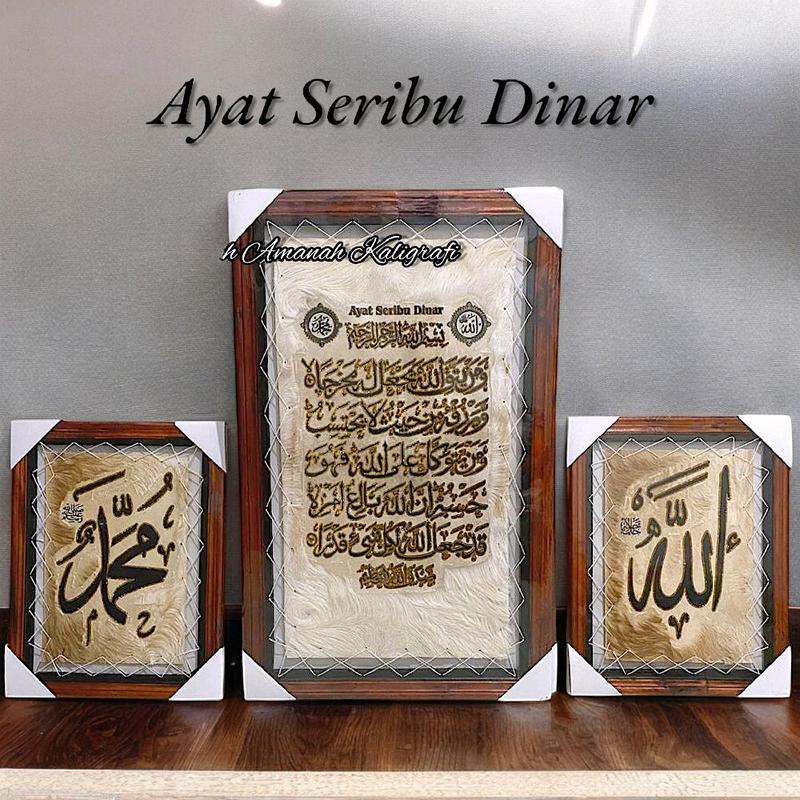 Ayat Seribu Dinar
h Amanah Kaligrafi
Ayat Seribu Dinar
محمد
الله
بسم الله الرحمن الرحيم
وَمَنْ يَتَّقِ اللّٰهَ يَجْعَلْ لَهُ مَخْرَجًا
وَيَرْزُقْهُ مِنْ حَيْثُ لَا يَحْتَسِبُ
وَمَنْ يَتَوَكَّلْ عَلَى اللّٰهِ فَهُوَ
حَسْبُهُ إِنَّ اللّٰهَ بَالِغُ أَمْرِهِ
قَدْ جَعَلَ اللّٰهُ لِكُلِّ شَيْءٍ قَدْرًا
صدق الله العظيم
محمد
الله